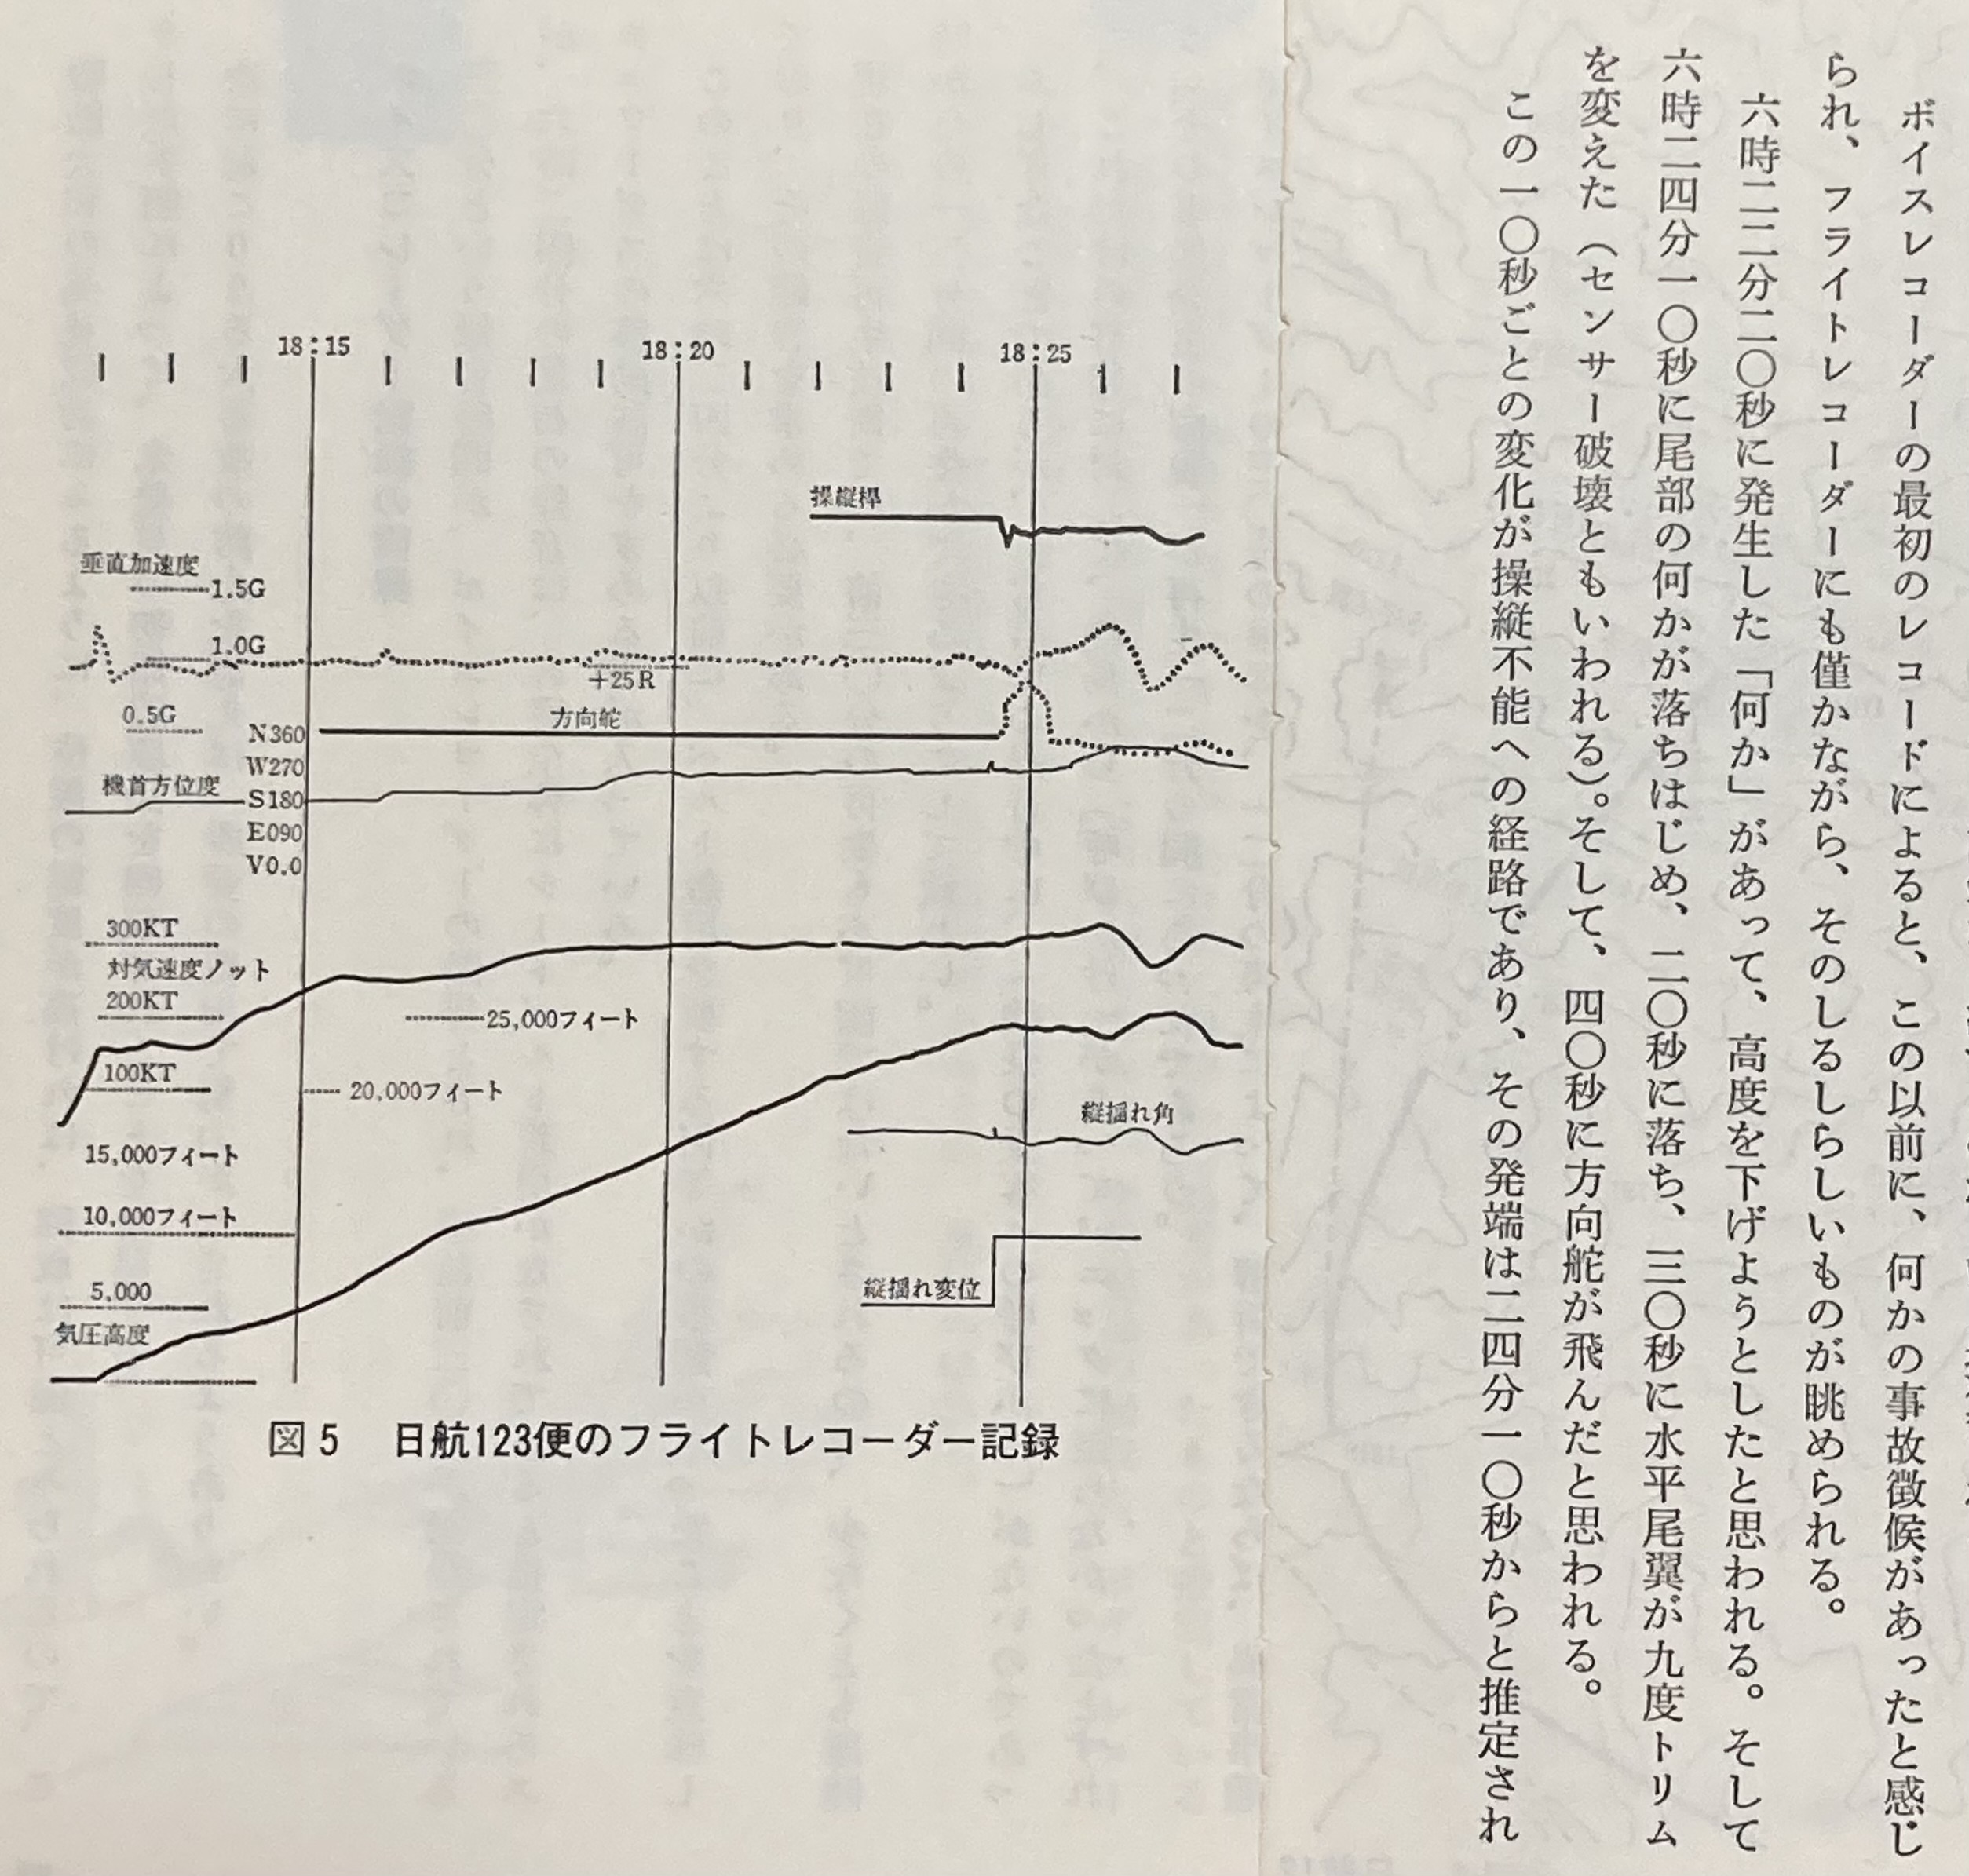 ボイスレコーダーの最初のレコードによると、この以前に、何かの事故徴候があったと感じ
られ、フライトレコーダーにも僅かながら、そのしるしらしいものが眺められる。
六時二二分二〇秒に発生した「何か」があって、高度を下げようとしたと思われる。そして
六時二四分一〇秒に尾部の何かが落ちはじめ、二〇秒に落ち、三〇秒に水平尾翼が九度トリム
を変えた（センサー破壊ともいわれる）。そして、四〇秒に方向舵が飛んだと思われる。
この一〇秒ごとの変化が操縦不能への経路であり、その発端は二四分一〇秒からと推定され
18:15
18:20
18:25
操縦桿
垂直加速度
1.5G
1.0G
+25R
0.5G
方向舵
N360
W270
機首方位度
S180
E090
V0.0
300KT
対気速度ノット
200KT
25,000フィート
100KT
20,000フィート
縦揺れ角
15,000フィート
10,000フィート
縦揺れ変位
5,000
気圧高度
図5 日航123便のフライトレコーダー記録